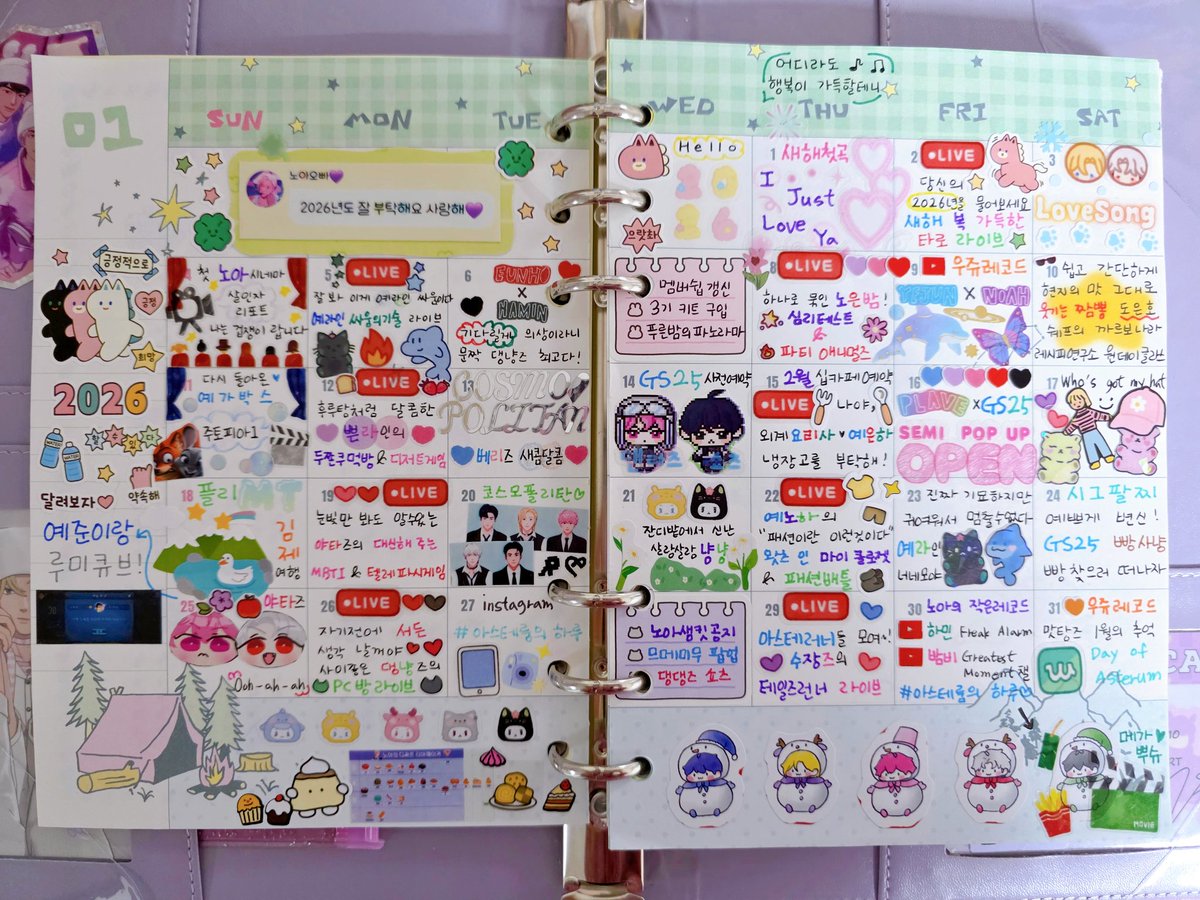 어디라도 ♪ ♫
행복이 가득할테니
01
SUN
MON
TUE
WED
THU
FRI
SAT
노아오빠💜
2026년도 잘 부탁해요 사랑해💜
Hello
2026
으랏차
1 새해첫곡
I
Just
Love Ya
2 LIVE
당신의
2026년을 물어보세요
새해 복 가득한
타로 라이브
3
LoveSong
긍정적으로
긍정
희망
4 첫 노아시네마
살인자
리포트
나는 겁쟁이 랍니다
5 LIVE
잘 봐 이게 예라인 싸움이다
예라인 싸움의기술 라이브
6 EUNHO
X
HAMIN
기다릴게 의상이라니
뭉짝 댕냥즈 최고다!
멤버쉽 갱신
3기 키트 구입
푸른밤의 파노라마
8 LIVE
하나로 묶인 노은밤!
심리테스트
&
파티 애니멀즈
9 우쥬레코드
YEJUN X NOAH
10 쉽고 간단하게
현지의 맛 그대로
웃기는 짬뽕빵 도은호
쉐프의 까르보나라
레시피연구소 원데이클라쓰
2026
할 수 있다
11 다시 돌아온
예가박스
주토피아1
12 LIVE
후루탕처럼 달콤한
쁜라인의
두쫀쿠먹방 & 디저트게임
13
COSMO
POLITAN
베리즈 새콤달콤
14 GS25 사전예약
15 2월 십카페예약
LIVE 나야,
외계요리사 예은하
냉장고를 부탁해!
16
PLAVE x GS25
SEMI POP UP
OPEN
17 Who's got my hat
달려보자 약속해
예준이랑
루미큐브!
18 플리MT
김제
여행
19 LIVE
눈빛만 봐도 알수있는
야타즈의 대신해 주는
MBTI & 텔레파시게임
20 코스모폴리탄
21
잔디밭에서 신난
살랑살랑 냥냥
22 LIVE
예노하의
"패션이란 이런것이다"
왓츠 인 마이 클로젯
& 패션배틀
23 진짜 기묘하지만
귀여워서 멈출수없다
예라인
너네모야
24 시그팔찌
예쁘게 변신!
GS25 빵사냥
빵 찾으러 떠나자
25 야타즈
Ooh-ah-ah
26 LIVE
자기전에 서든
생각 날꺼야
사이좋은 댕냥즈의
PC방 라이브
27 instagram
#아스테룸의 하루
노아생킷공지
므메미무 팝업
댕댕즈 쇼츠
29 LIVE
아스테러너들 모여!
수장즈의
테일즈런너 라이브
30 노아의 작은레코드
하민 Freak Alarm
밤비 Greatest
Moment챌
#아스테룸의 하루
31 우쥬레코드
맏탕즈 1월의 추억
Day of
Asterum
메가
뿌슈
MOVIE